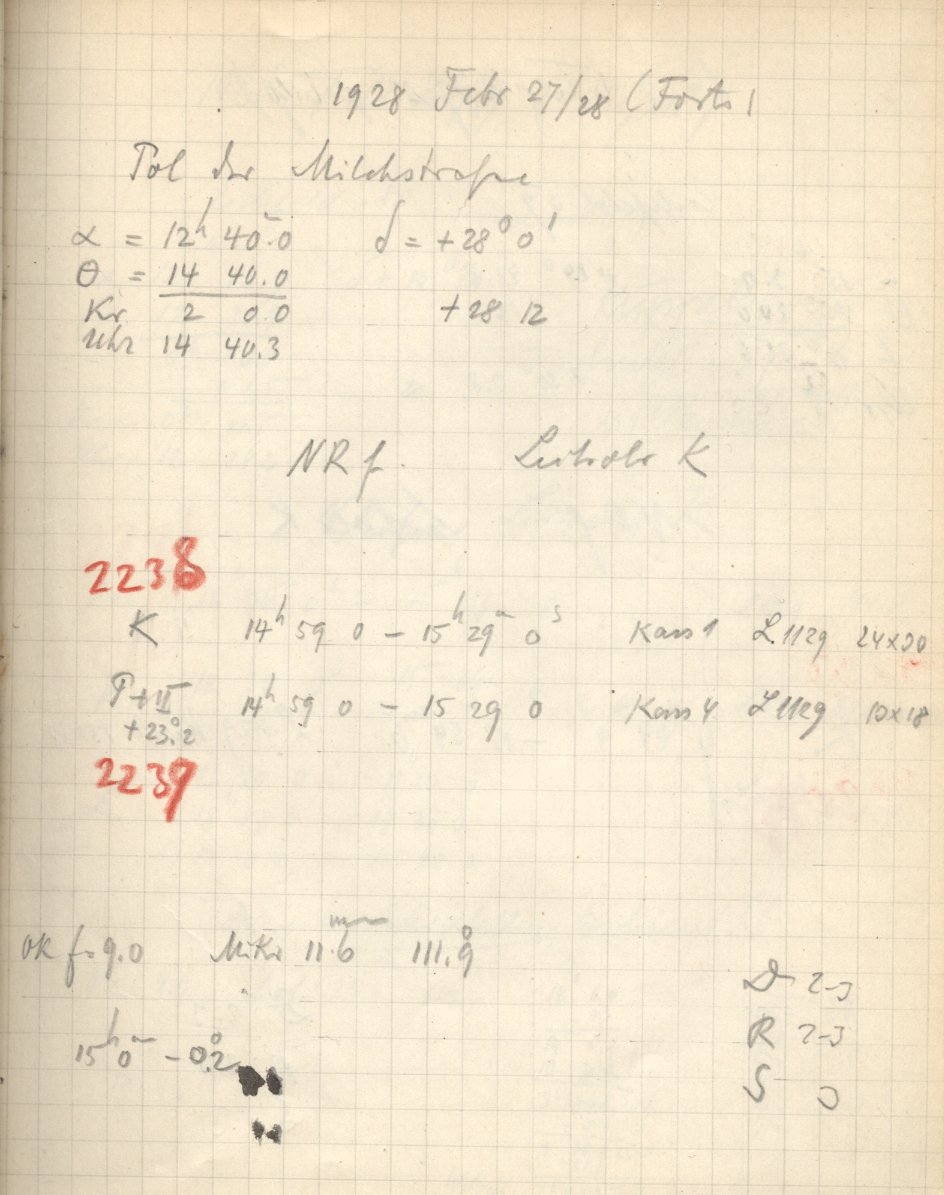 1928 Febr 27/28 (Forts)
Pol der Milchstraße
α = 12h 40m.0 δ = +28° 0'
θ = 14 40.0
Kr. 2 0.0 +28 12
Uhr 14 40.3
NR f. K
2238
K 14h 59 0 – 15h 29m 0s Kass 1 L.1129 24×30
+23.°2 14h 59 0 – 15 29 0 Kass 4 L1129 10×18
2239
OK f. 9.0 Mikr 11.6mm 111.°9
D 2-3
15h 0m – 0.°2 R 2-3
S 3